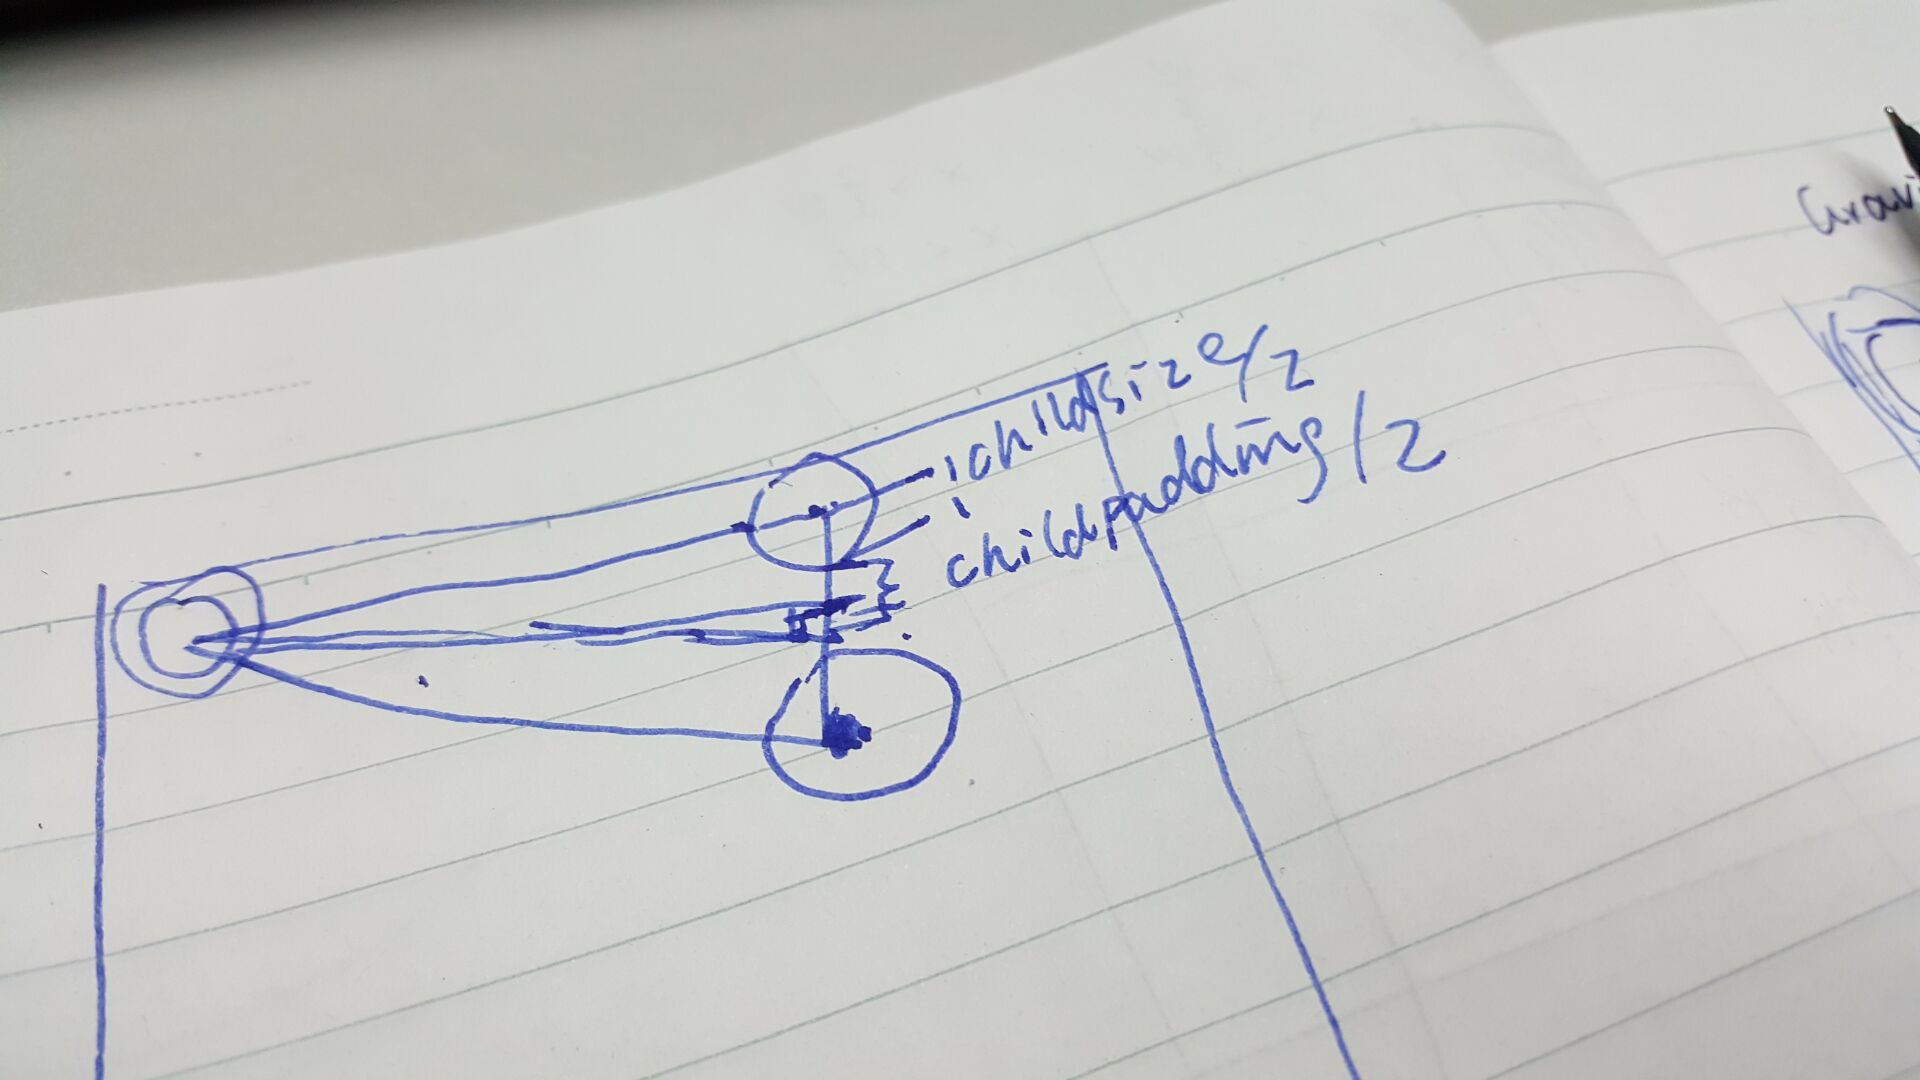 childsize/2
childpadding/2